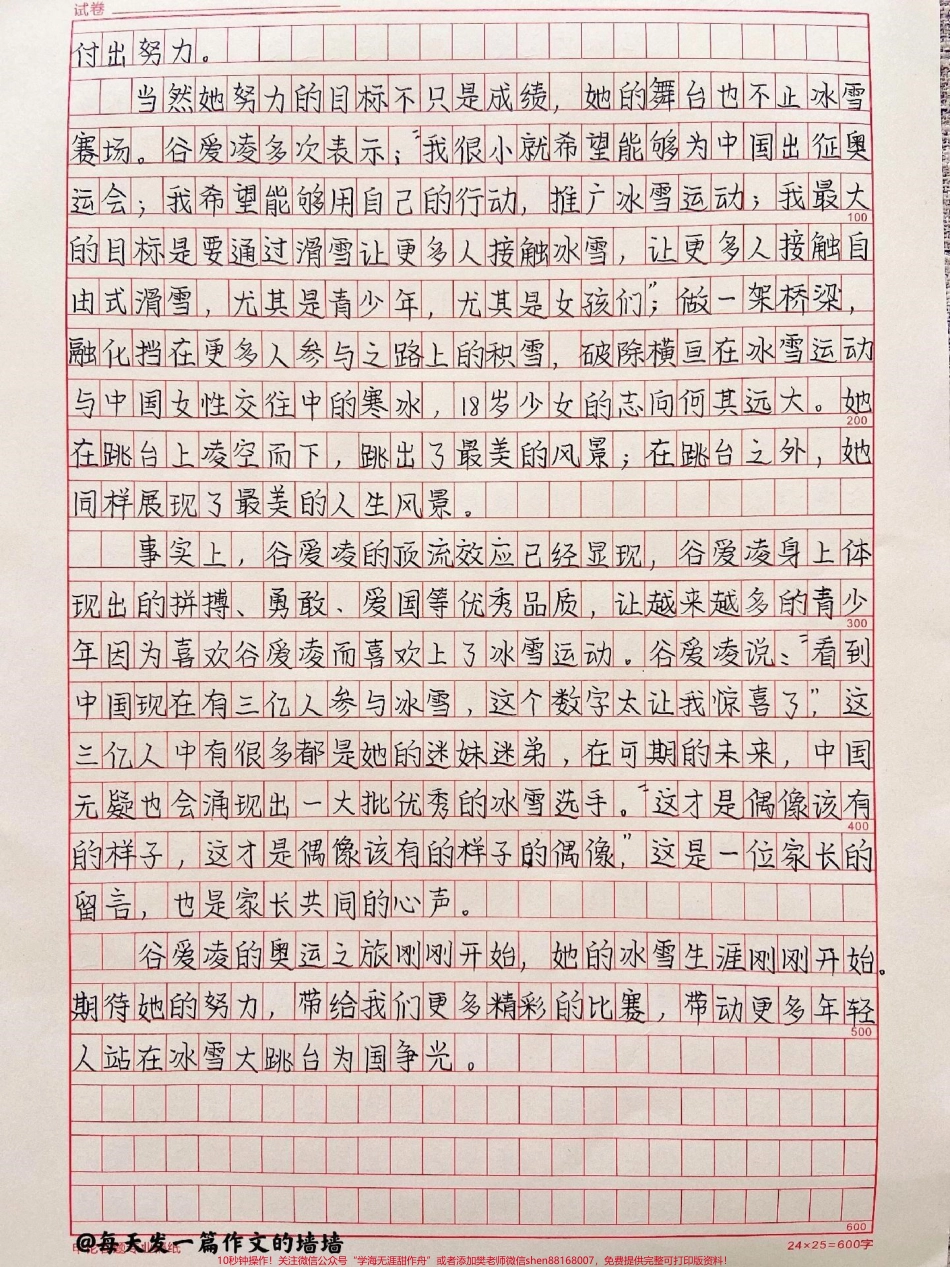 试卷
付出努力。
当然她努力的目标不只是成绩，她的舞台也不止冰雪
赛场。谷爱凌多次表示：“我很小就希望能够为中国出征奥
运会；我希望能够用自己的行动，推广冰雪运动；我最大
100
的目标是要通过滑雪让更多人接触冰雪，让更多人接触自
由式滑雪，尤其是青少年，尤其是女孩们”；做一架桥梁，
融化挡在更多人参与之路上的积雪，破除横亘在冰雪运动
与中国女性交往中的寒冰，18岁少女的志向何其远大。她
200
在跳台上凌空而下，跳出了最美的风景；在跳台之外，她
同样展现了最美的人生风景。
事实上，谷爱凌的顶流效应已经显现，谷爱凌身上体
现出的拼搏、勇敢、爱国等优秀品质，让越来越多的青少
300
年因为喜欢谷爱凌而喜欢上了冰雪运动。谷爱凌说：“看到
中国现在有三亿人参与冰雪，这个数字太让我惊喜了”，这
三亿人中有很多都是她的迷妹迷弟，在可期的未来，中国
无疑也会涌现出一大批优秀的冰雪选手。“这才是偶像该有
400
的样子，这才是偶像该有的样子的偶像，”这是一位家长的
留言，也是家长共同的心声。
谷爱凌的奥运之旅刚刚开始，她的冰雪生涯刚刚开始。
期待她的努力，带给我们更多精彩的比赛，带动更多年轻
500
人站在冰雪大跳台为国争光。
600
@每天发一篇作文的墙墙
24×25=600字
10秒钟操作！关注微信公众号“学海无涯甜作舟”或者添加樊老师微信shen88168007，免费提供完整可打印版资料！